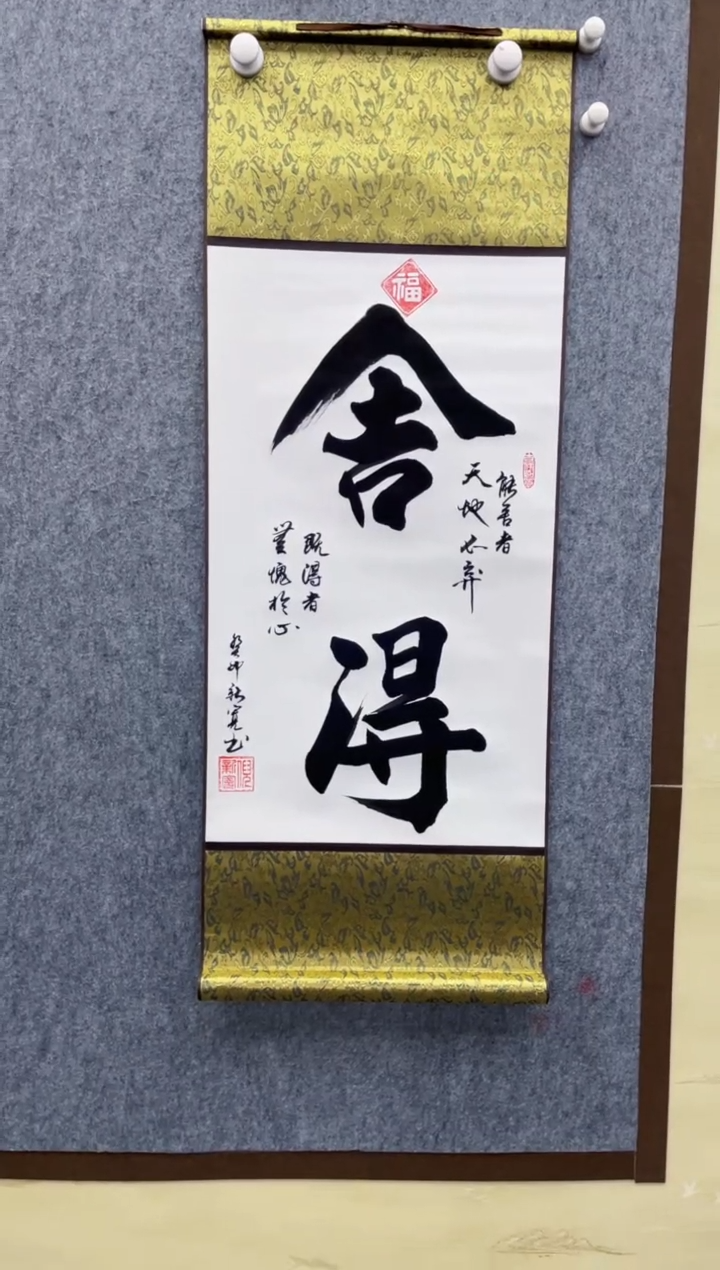 福
舍得
能舍者
天地不弃
既得者
無愧於心
癸卯新寬书